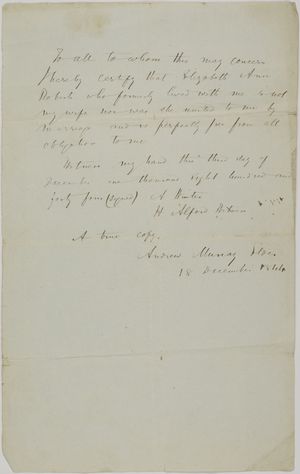 To all to whom this may concern
I hereby certify that Elizabeth Ann
Roberts who formerly lived with me is not
my wife nor was she united to me by
Marriage and is perfectly free from all
obligation to me
Witness my hand this third day of
December one thousand eight hundred and
forty four (signed) A
H. Alford
A true copy.
Andrew Murray
18 December 1844